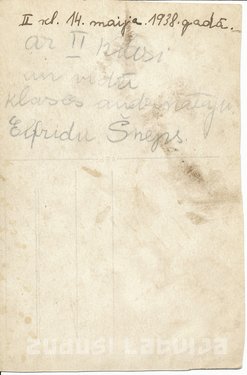 II kl. 14. maija 1938. gadā.
ar II klasi
un
klases audzinātāju
Elfrīdu Šneps.
ZUDUSI LATVIJA